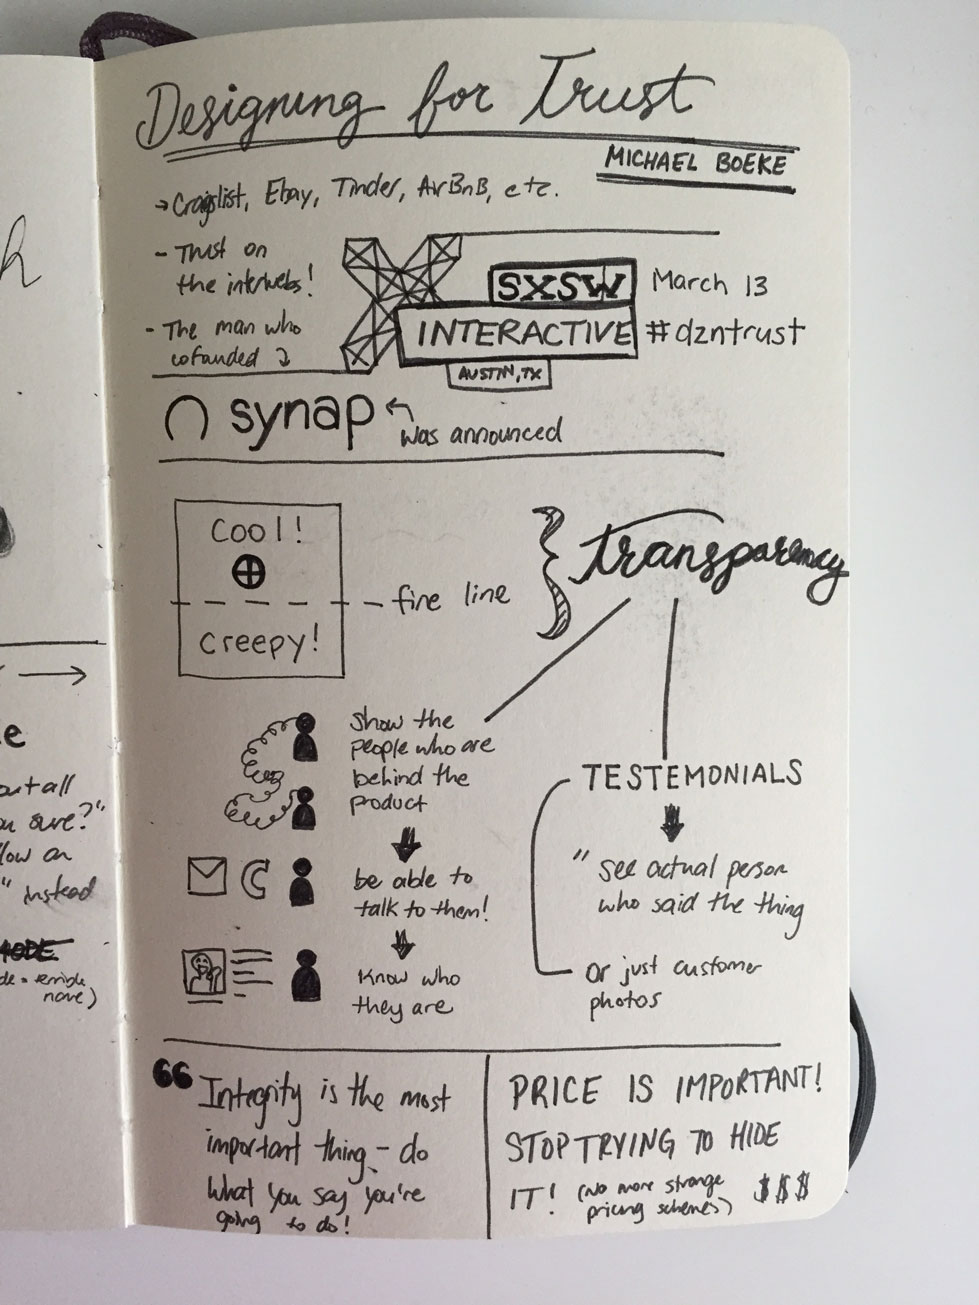 Designing for Trust
MICHAEL BOEKE
→ Craigslist, Ebay, Tinder, AirBnB, etc.
- Trust on
the interwebs!
- The man who
cofounded
SXSW
INTERACTIVE
AUSTIN, TX
March 13
#dzntrust
synap
was announced
Cool!
Creepy!
fine line
transparency
show the
people who are
behind the
product
be able to
talk to them!
Know who
they are
TESTEMONIALS
"see actual person
who said the thing
Or just customer
photos
66 Integrity is the most
important thing - do
what you say you're
going to do!
PRICE IS IMPORTANT!
STOP TRYING TO HIDE
IT! (No more strange
pricing schemes) $$$
h
e
out all
sure?"
" instead
MODE
terrible
name)